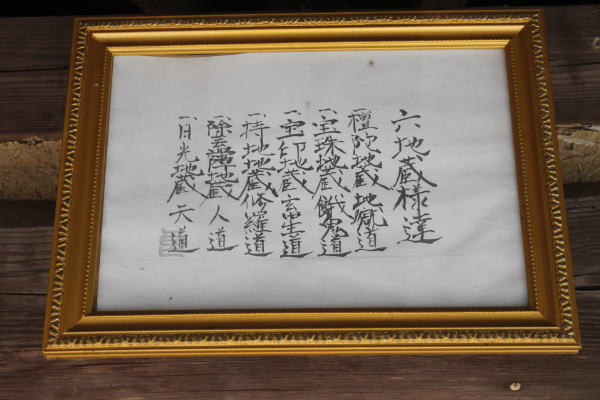 六地蔵様達
一、檀陀地蔵 地獄道
一、宝珠地蔵 餓鬼道
一、宝印地蔵 畜生道
一、持地地蔵 修羅道
一、除蓋障地蔵 人道
一、日光地蔵 天道